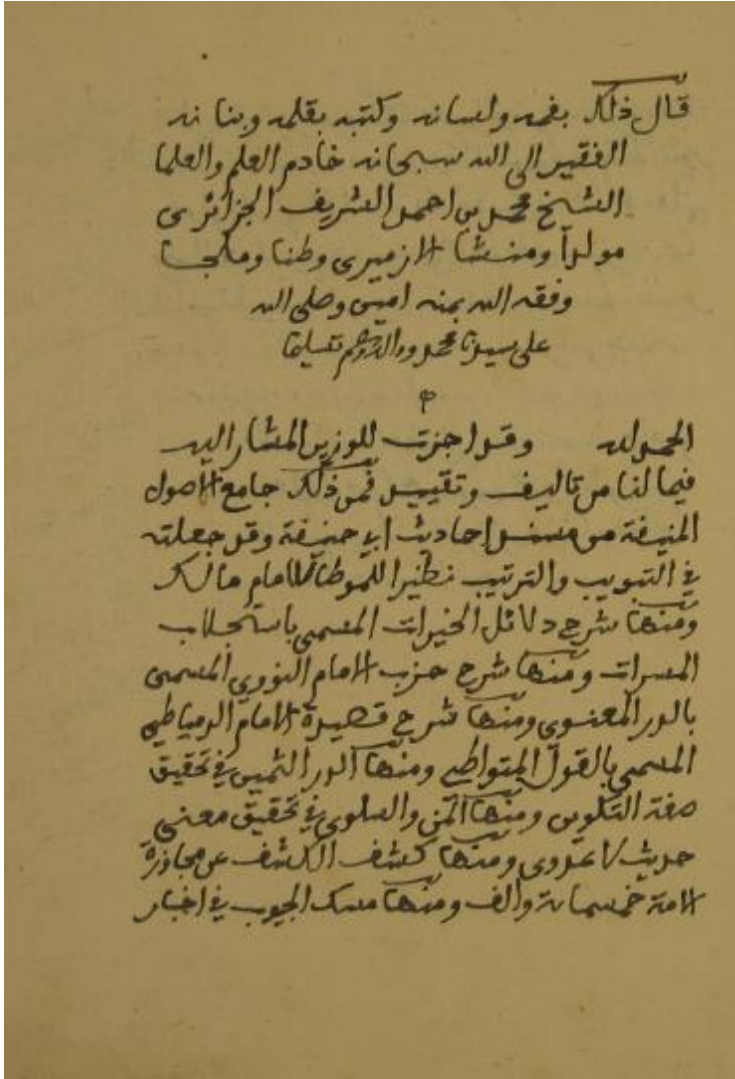 قال ذلك بفمه ولسانه وكتبه بقلمه وبنانه
الفقير الى الله سبحانه خادم العلم والعلما
الشيخ محمد بن احمد الشريف الجزائرى
مولدا ومنشا الازميرى وطنا وملجا
وفقه الله بمنه امين وصلى الله
على سيدنا محمد واله وصحبه وسلم تسليما
الحمد لله وقد اجزت للوزير المشار اليه
فيما لنا من تاليف وتقييد فمن ذلك جامع الاصول
المنيفة من مسند احاديث ابي حنيفة وقد جعلته
في التبويب والترتيب نظيرا للموطا للامام مالك
ومنها شرح دلائل الخيرات المسمى باستجلاب
المسرات ومنها شرح حزب الامام النووي المسمى
بالدر المعنوي ومنها شرح قصيدة الامام الدمياطي
المسمى بالقول المتواطي ومنها الدر الثمين في تحقيق
صفة التكوين ومنها المن والسلوى في تحقيق معنى
حديث لا عدوى ومنها كشف الكشف عن مجاوزة
الامة خمسمائة والف ومنها مسك الجيوب في اخبار